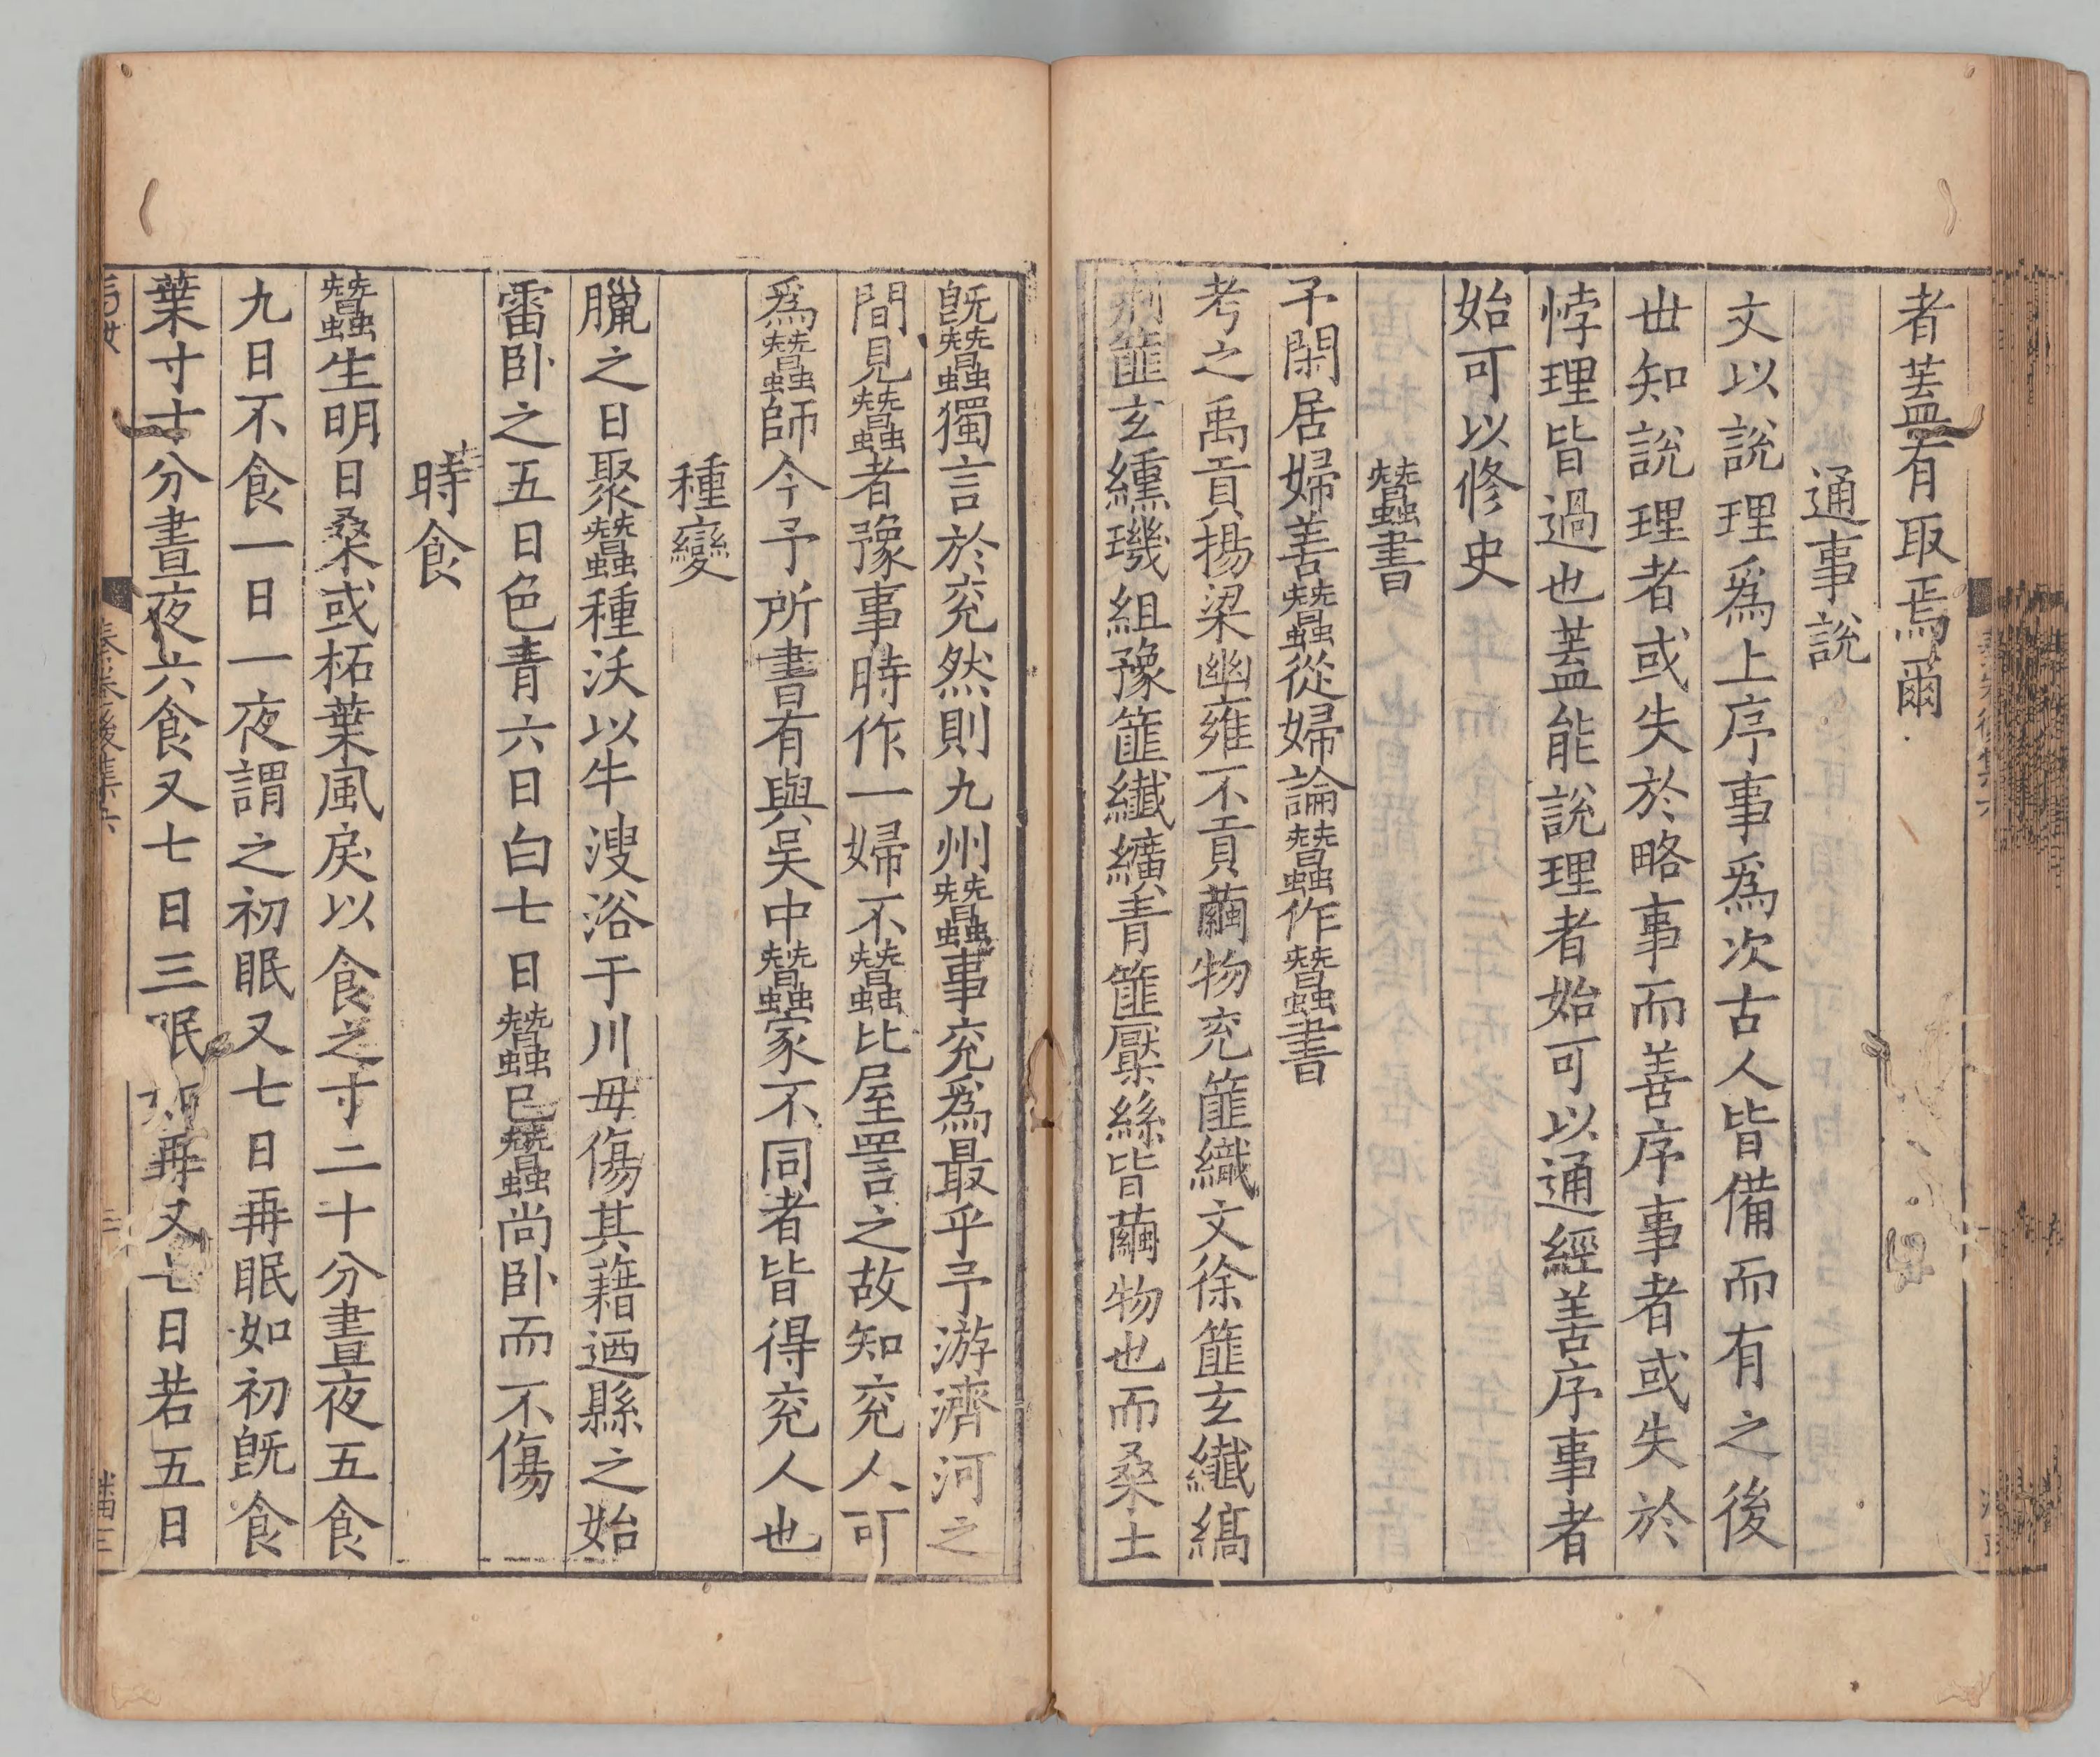 者蓋有取焉爾
通事說
文以說理爲上序事爲次古人皆備而有之後
世知說理者或失於略事而善序事者或失於
悖理皆過也蓋能說理者始可以通經善序事者
始可以修史
蠶書
予閑居婦善蠶從婦論蠶作蠶書
考之禹貢揚梁幽雍不貢繭物兖篚織文徐篚玄纖縞
荊篚玄纁璣組豫篚纖纊青篚檿絲皆繭物也而桑土
旣蠶獨言於兖然則九州蠶事兖爲最乎予游濟河之
間見蠶者豫事時作一婦不蠶比屋詈之故知兖人可
爲蠶師今予所書有與吳中蠶家不同者皆得兖人也
種變
臘之日聚蠶種沃以牛溲浴于川毋傷其籍迺縣之始
雷卧之五日色青六日白七日蠶已蠶尚卧而不傷
時食
蠶生明日桑或柘葉風戾以食之寸二十分晝夜五食
九日不食一日一夜謂之初眠又七日再眠如初旣食
葉寸十分晝夜六食又七日三眠如再又七日若五日